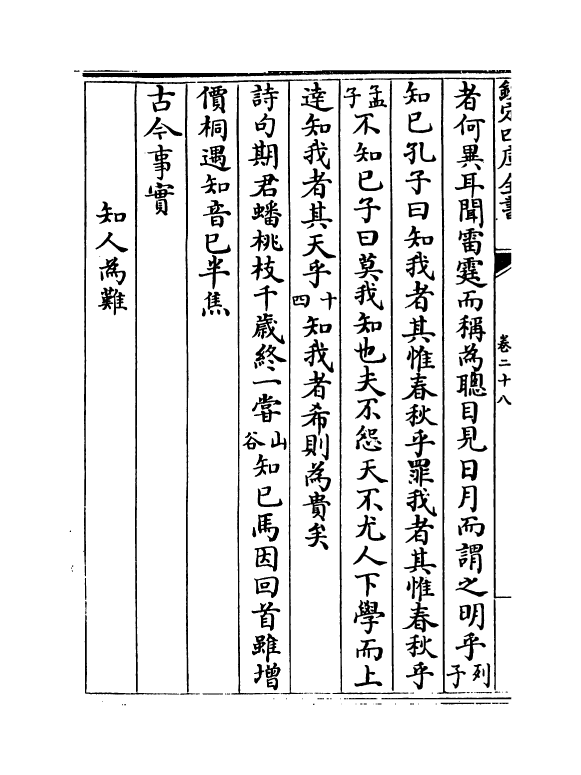 欽定四庫全書
卷二十八
者何異耳聞雷霆而稱為聰目見日月而謂之明乎列子
知已孔子曰知我者其惟春秋乎罪我者其惟春秋乎
孟子不知已子曰莫我知也夫不怨天不尤人下學而上
達知我者其天乎十四知我者希則為貴矣
詩句期君蟠桃枝千歲終一嘗山谷知已馬因回首雖增
價桐遇知音已半焦
古今事實
知人為難